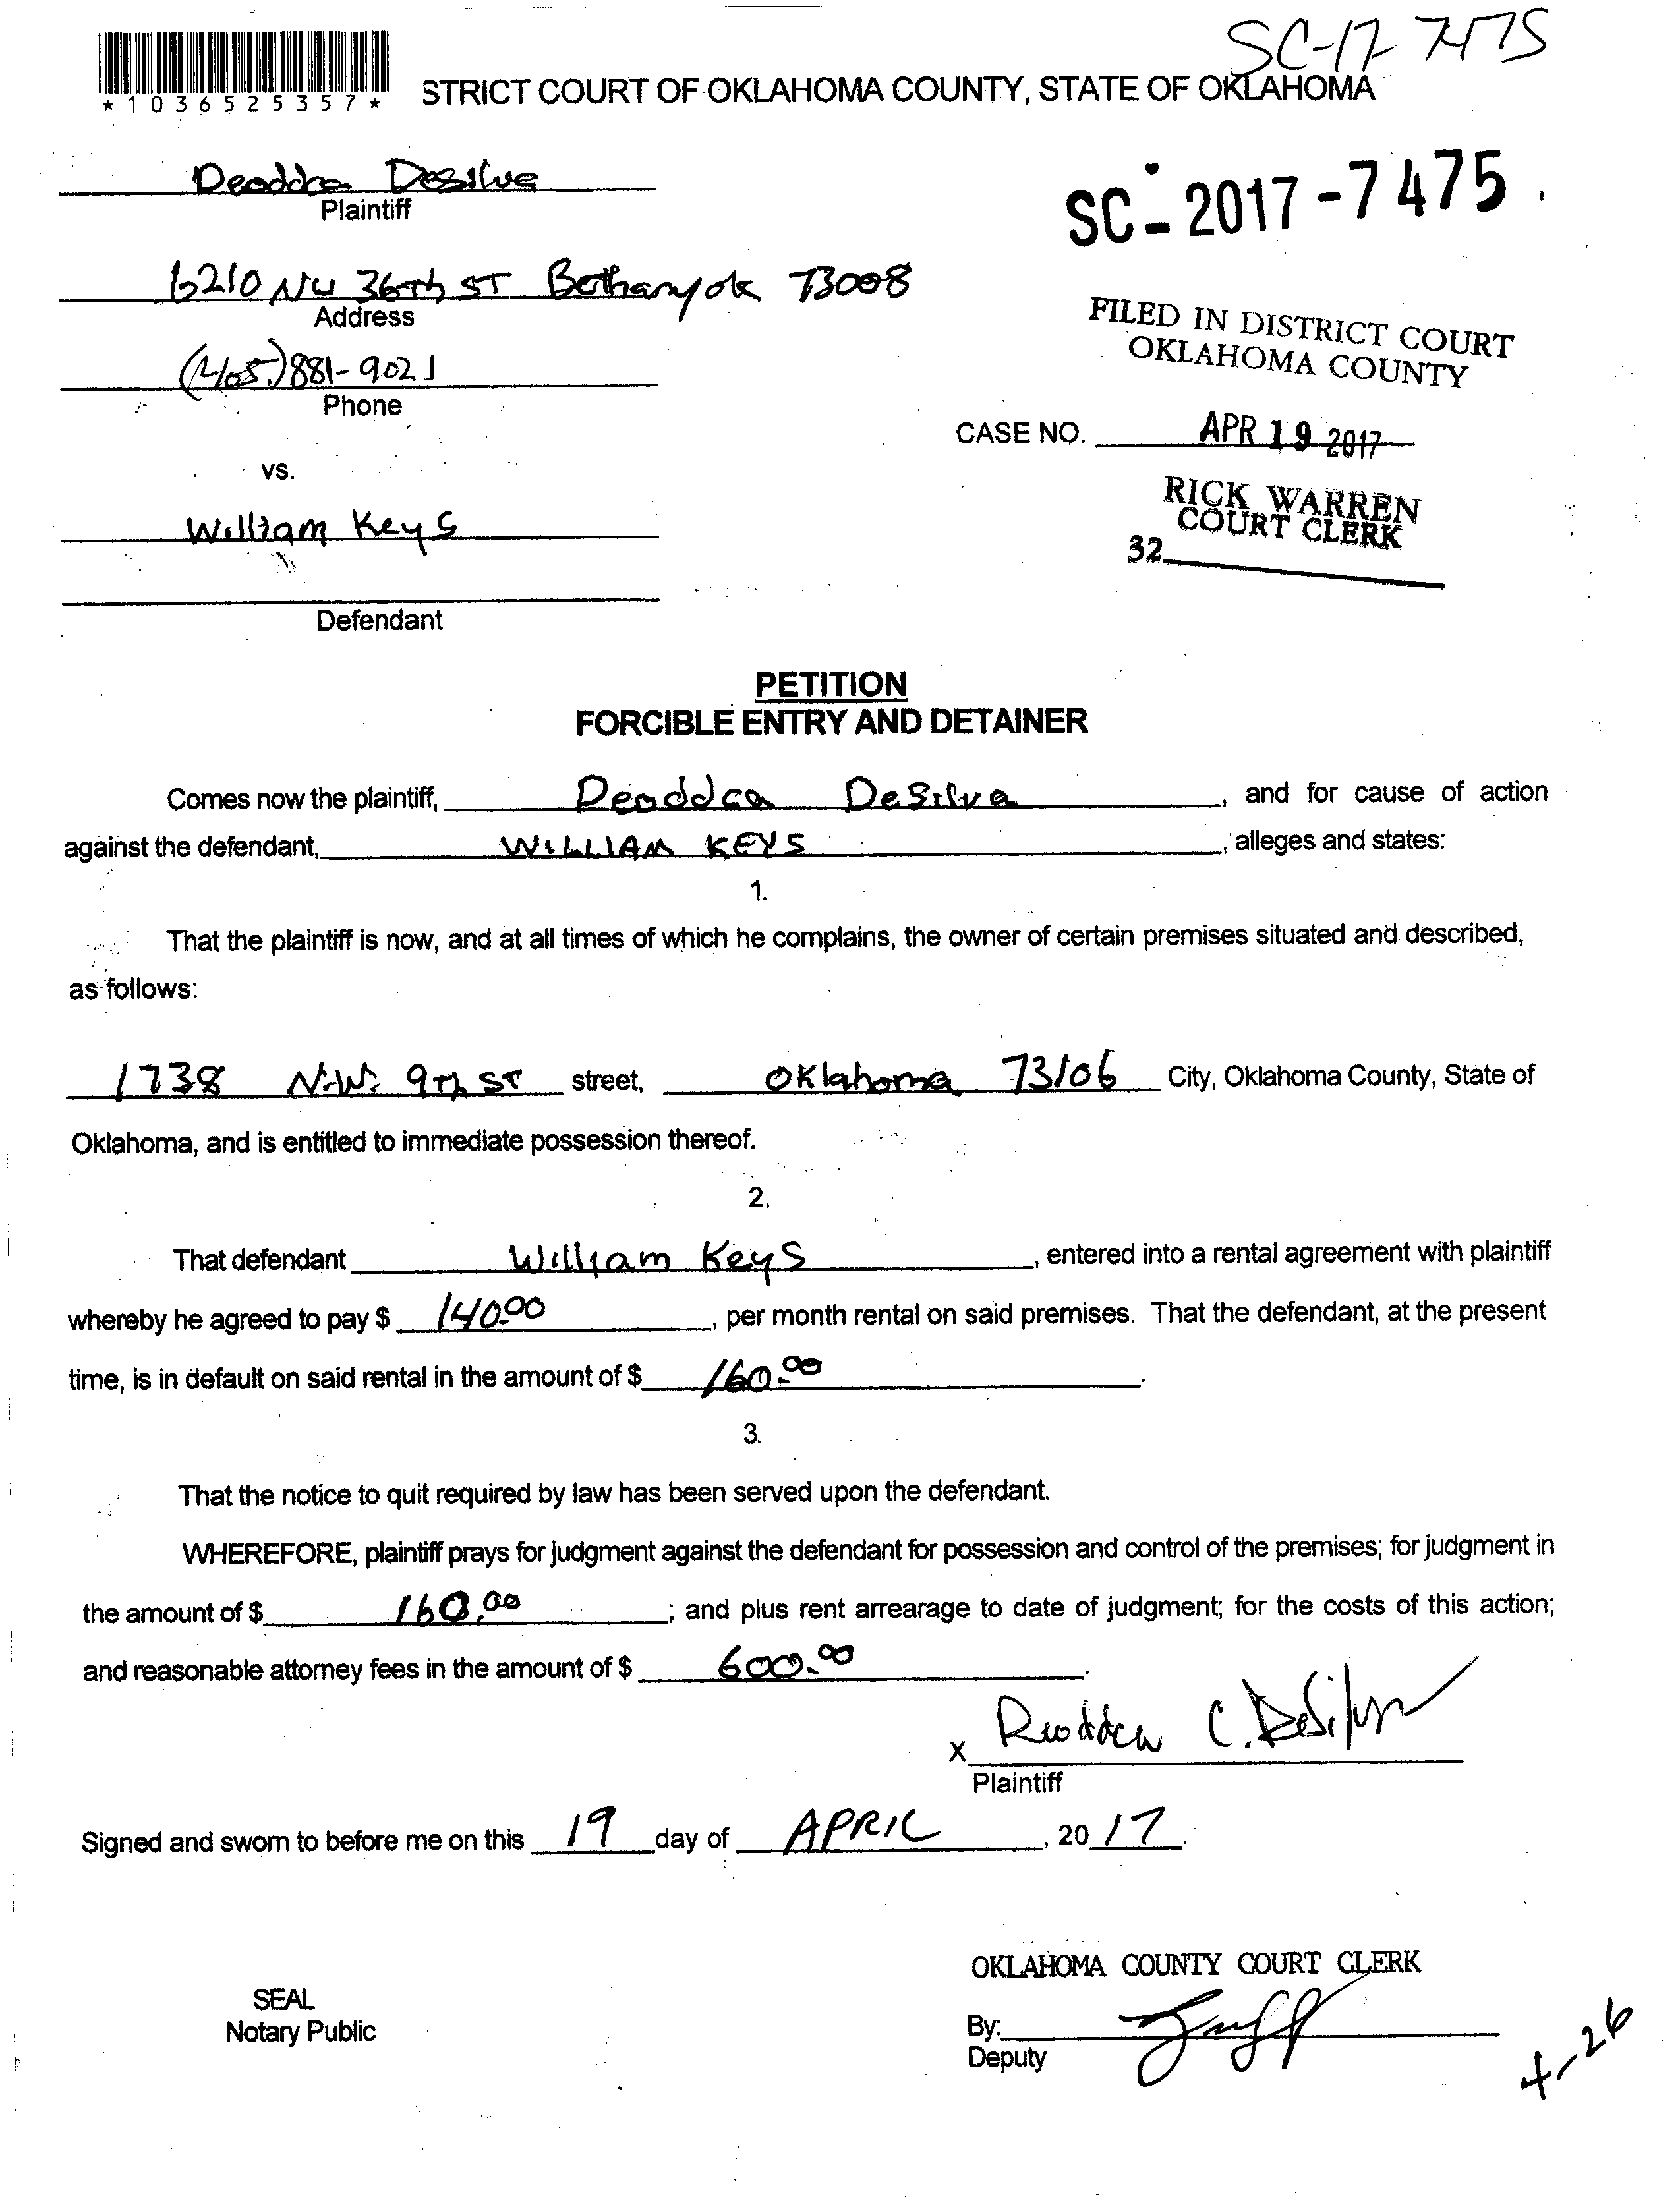 SC-17 7475
*1036525357*
STRICT COURT OF OKLAHOMA COUNTY, STATE OF OKLAHOMA
Deoddca Desilva
Plaintiff
SC-2017-7475
6210 NW 36th ST Bethany ok 73008
Address
FILED IN DISTRICT COURT
OKLAHOMA COUNTY
(405) 881-9021
Phone
CASE NO. APR 19 2017
vs.
RICK WARREN
COURT CLERK
William Keys
32
Defendant
PETITION
FORCIBLE ENTRY AND DETAINER
Comes now the plaintiff, Deoddca DeSilva, and for cause of action
against the defendant, WILLIAM KEYS, alleges and states:
1.
That the plaintiff is now, and at all times of which he complains, the owner of certain premises situated and described,
as follows:
1738 N.W. 9th ST street, Oklahoma 73106 City, Oklahoma County, State of
Oklahoma, and is entitled to immediate possession thereof.
2.
That defendant William Keys, entered into a rental agreement with plaintiff
whereby he agreed to pay $ 140.00, per month rental on said premises. That the defendant, at the present
time, is in default on said rental in the amount of $ 160.00.
3.
That the notice to quit required by law has been served upon the defendant.
WHEREFORE, plaintiff prays for judgment against the defendant for possession and control of the premises; for judgment in
the amount of $ 160.00; and plus rent arrearage to date of judgment; for the costs of this action;
and reasonable attorney fees in the amount of $ 600.00.
X C. DeSilva
Plaintiff
Signed and sworn to before me on this 19 day of APRIL, 2017.
OKLAHOMA COUNTY COURT CLERK
SEAL
Notary Public
By:
Deputy
4-26